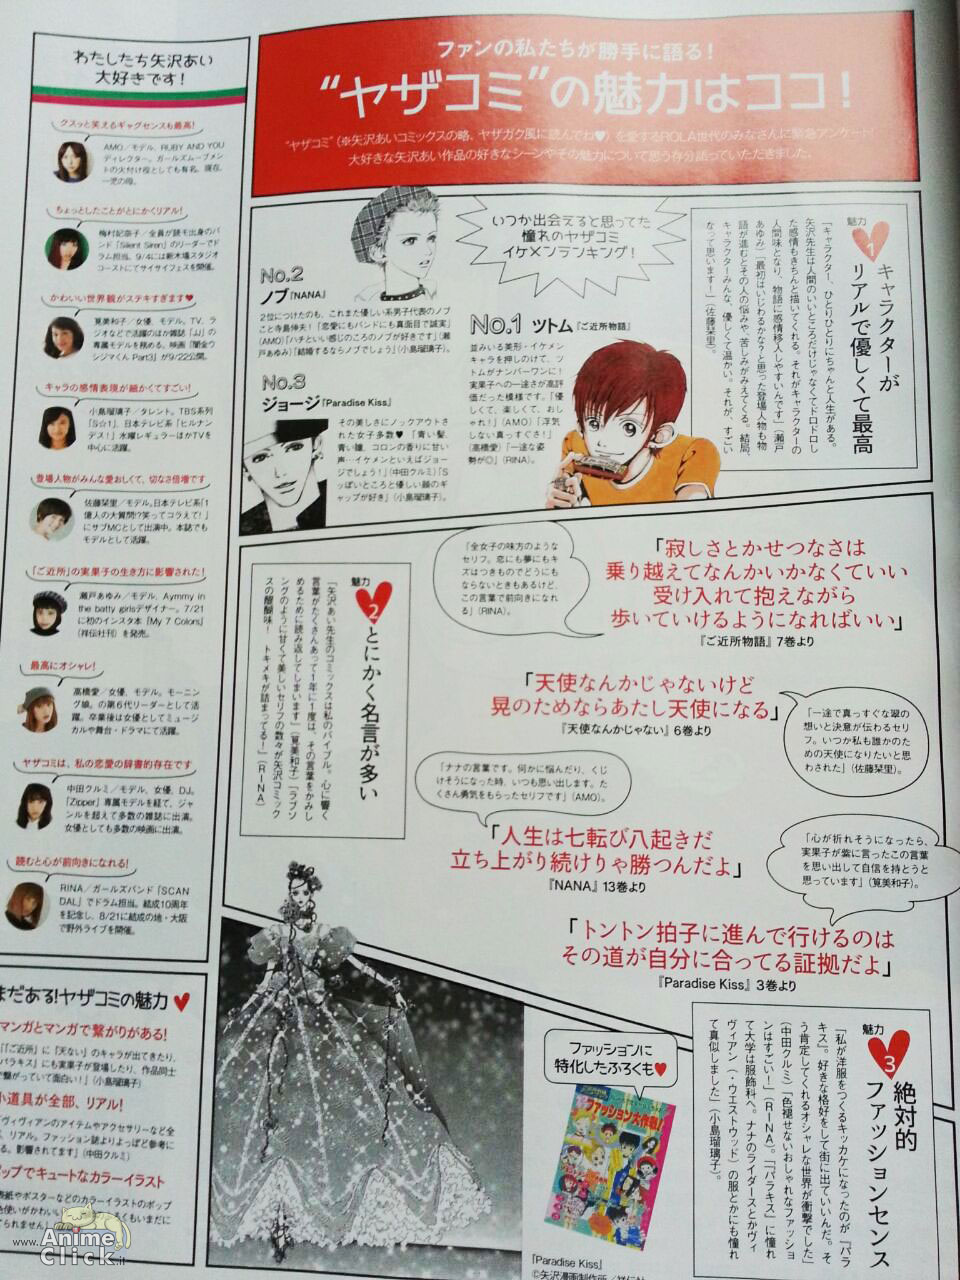 ファンの私たちが勝手に語る！
“ヤザコミ”の魅力はココ！
“ヤザコミ”(※矢沢あいコミックスの略、ヤザガク風に読んでね♥)を愛するROLA世代のみなさんに緊急アンケート!
大好きな矢沢あい作品の好きなシーンやその魅力について思う存分語っていただきました。
わたしたち矢沢あい
大好きです！
クスっと笑えるギャグセンスも最高！
AMO／モデル、RUBY AND YOU
ディレクター。ガールズムーブメン
トの火付け役としても有名。現在、
一児の母。
ちょっとしたことがとにかくリアル！
梅村妃奈子／全員が読モ出身のバ
ンド「Silent Siren」のリーダーでド
ラム担当。9/4には新木場スタジオ
コーストにてサイサイフェスを開催。
かわいい世界観がステキすぎます♥
筧美和子／女優、モデル。TV、ラ
ジオなどで活躍のほか雑誌「JJ」の
専属モデルを務める。映画「闇金ウ
シジマくん Part3」が9/22公開。
キャラの感情表現が細かくてすごい！
小島瑠璃子／タレント。TBS系列
「S☆1」、日本テレビ系「ヒルナン
デス！」水曜レギュラーほかTVを
中心に活躍。
登場人物がみんな愛おしくて、切なさ倍増です
佐藤栞里／モデル。日本テレビ系「1
億人の大質問!?笑ってコラえて！」
にサブMCとして出演中。本誌でも
モデルとして活躍。
「ご近所」の実果子の生き方に影響された！
瀬戸あゆみ／モデル、Aymmy in
the batty girlsデザイナー。7/21
に初のインスタ本「My 7 Colors」
(祥伝社刊)を発売。
最高にオシャレ！
高橋愛／女優、モデル。モーニン
グ娘。の第6代リーダーとして活
躍。卒業後は女優としてミュージ
カルや舞台・ドラマにて活躍。
ヤザコミは、私の恋愛の辞書的存在です
中田クルミ／モデル、女優、DJ。
「Zipper」専属モデルを経て、ジャ
ンルを超えて多数の雑誌に出演。
女優としても多数の映画に出演。
読むと心が前向きになれる！
RINA／ガールズバンド「SCAN
DAL」でドラム担当。結成10周年
を記念し、8/21に結成の地・大阪
で野外ライブを開催。
いつか出会えると思ってた
憧れのヤザコミ
イケメンランキング！
No.2
ノブ『NANA』
2位につけたのも、これまた優しい系男子代表のノブ
こと寺島伸夫！「恋愛にもバンドにも真面目で誠実」
(AMO)「ハチといい感じのころのノブが好きです」(瀬
戸あゆみ)「結婚するならノブでしょう」(小島瑠璃子)。
No.1 ツトム『ご近所物語』
並みいる美形・イケメン
キャラを押しのけて、ツ
トムがナンバーワンに！
実果子への一途さが高評
価だった模様です。「優
しくて、楽しくて、おし
ゃれ！」(AMO)「浮気
しない真っすぐさ！」
(高橋愛)「一途な姿
勢が◎」(RINA)。
No.3
ジョージ『Paradise Kiss』
その美しさにノックアウトさ
れた女子多数♥「青い髪、
青い瞳、コロンの香りに甘い
声…イケメンといえばジョー
ジでしょう！」(中田クルミ)「S
っぽいところと優しい顔のギ
ャップが好き」(小島瑠璃子)。
魅力1
キャラクターが
リアルで優しくて最高
「キャラクター、ひとりひとりにちゃんと人生がある。
矢沢先生は人間のいいところだけじゃなくてドロドロし
た感情もきちんと描いてくれる。それがキャラクターの
人間味となり、物語に感情移入しやすいんです」(瀬戸
あゆみ)「最初はいじわるかな?と思った登場人物も物
語が進むとその人の悩みや、苦しみがみえてくる。結局、
キャラクターみんな、優しくて温かい。それが、すごい
なって思います！」(佐藤栞里)。
魅力2
とにかく名言が多い
「矢沢あい先生のコミックスは私のバイブル。心に響く
言葉がたくさんあって1年に1度は、その言葉をかみし
めるために読み返してしまいます」(筧美和子)「ラブソ
ングのように甘くて美しいセリフの数々が矢沢コミック
スの醍醐味！トキメキが詰まってる！」(RINA)
「全女子の味方のような
セリフ。恋にも夢にもキ
ズはつきものでどうにも
ならないときもあるけど、
この言葉で前向きになれ
る」(RINA)。
「寂しさとかせつなさは
乗り越えてなんかいかなくていい
受け入れて抱えながら
歩いていけるようになればいい」
『ご近所物語』7巻より
「天使なんかじゃないけど
晃のためならあたし天使になる」
『天使なんかじゃない』6巻より
「一途で真っすぐな翠の
想いと決意が伝わるセリ
フ。いつか私も誰かのた
めの天使になりたいと思
わされた」(佐藤栞里)。
「ナナの言葉です。何かに悩んだり、くじ
けそうになった時、いつも思い出します。た
くさん勇気をもらったセリフです」(AMO)。
「人生は七転び八起きだ
立ち上がり続けりゃ勝つんだよ」
『NANA』13巻より
「心が折れそうになったら、
実果子が紫に言ったこの言葉
を思い出して自信を持とうと
思っています」(筧美和子)。
「トントン拍子に進んで行けるのは
その道が自分に合ってる証拠だよ」
『Paradise Kiss』3巻より
魅力3
絶対的
ファッションセンス
「私が洋服をつくるキッカケになったのが、『パラ
キス』。好きな格好をして街に出ていいんだ。そ
う肯定してくれるオシャレな世界が衝撃でした」
(中田クルミ)「色褪せないおしゃれなファッショ
ンはすごい！」(RINA)。「『パラキス』に憧れ
て大学は服飾科へ。ナナのライダースとかヴィ
ヴィアン(・ウエストウッド)の服とかにも憧れ
て真似しました」(小島瑠璃子)。
ファッションに
特化したふろくも♥
ファッション大作戦！
『Paradise Kiss』
まだある！ヤザコミの魅力
マンガとマンガで繋がりがある！
「『ご近所』に『天ない』のキャラが出てきたり、
パラキス』にも実果子が登場したり、作品同士
で繋がっていて面白い！」(小島瑠璃子)
小道具が全部、リアル！
「ヴィヴィアンのアイテムやアクセサリーなど全
、リアル。ファッション誌よりよっぽど参考に
る。影響されてます」(中田クルミ)
ポップでキュートなカラーイラスト
表紙やポスターなどのカラーイラストのポップ
www.AnimeClick.it